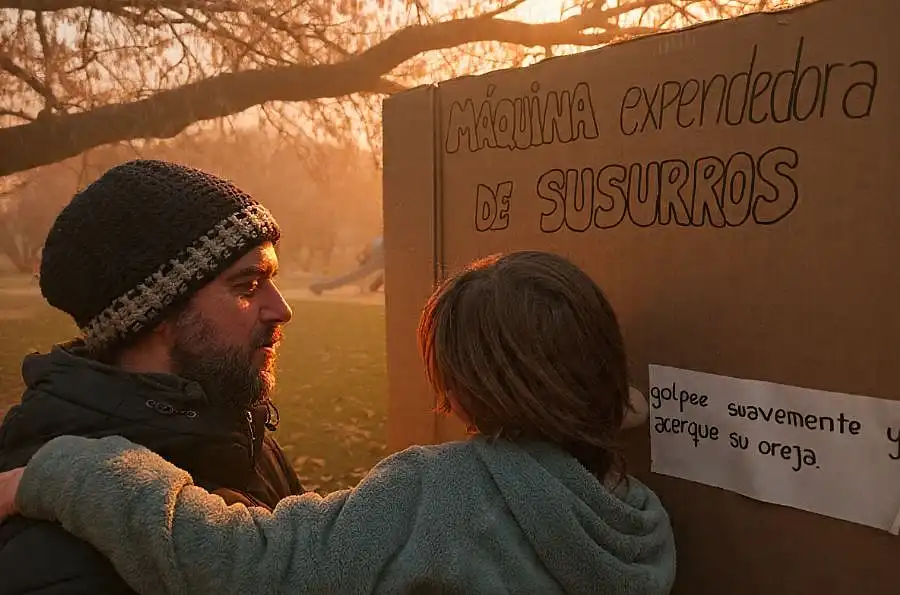 MÁQUINA expendedora
DE SUSURROS
golpee suavemente y
acerque su oreja.